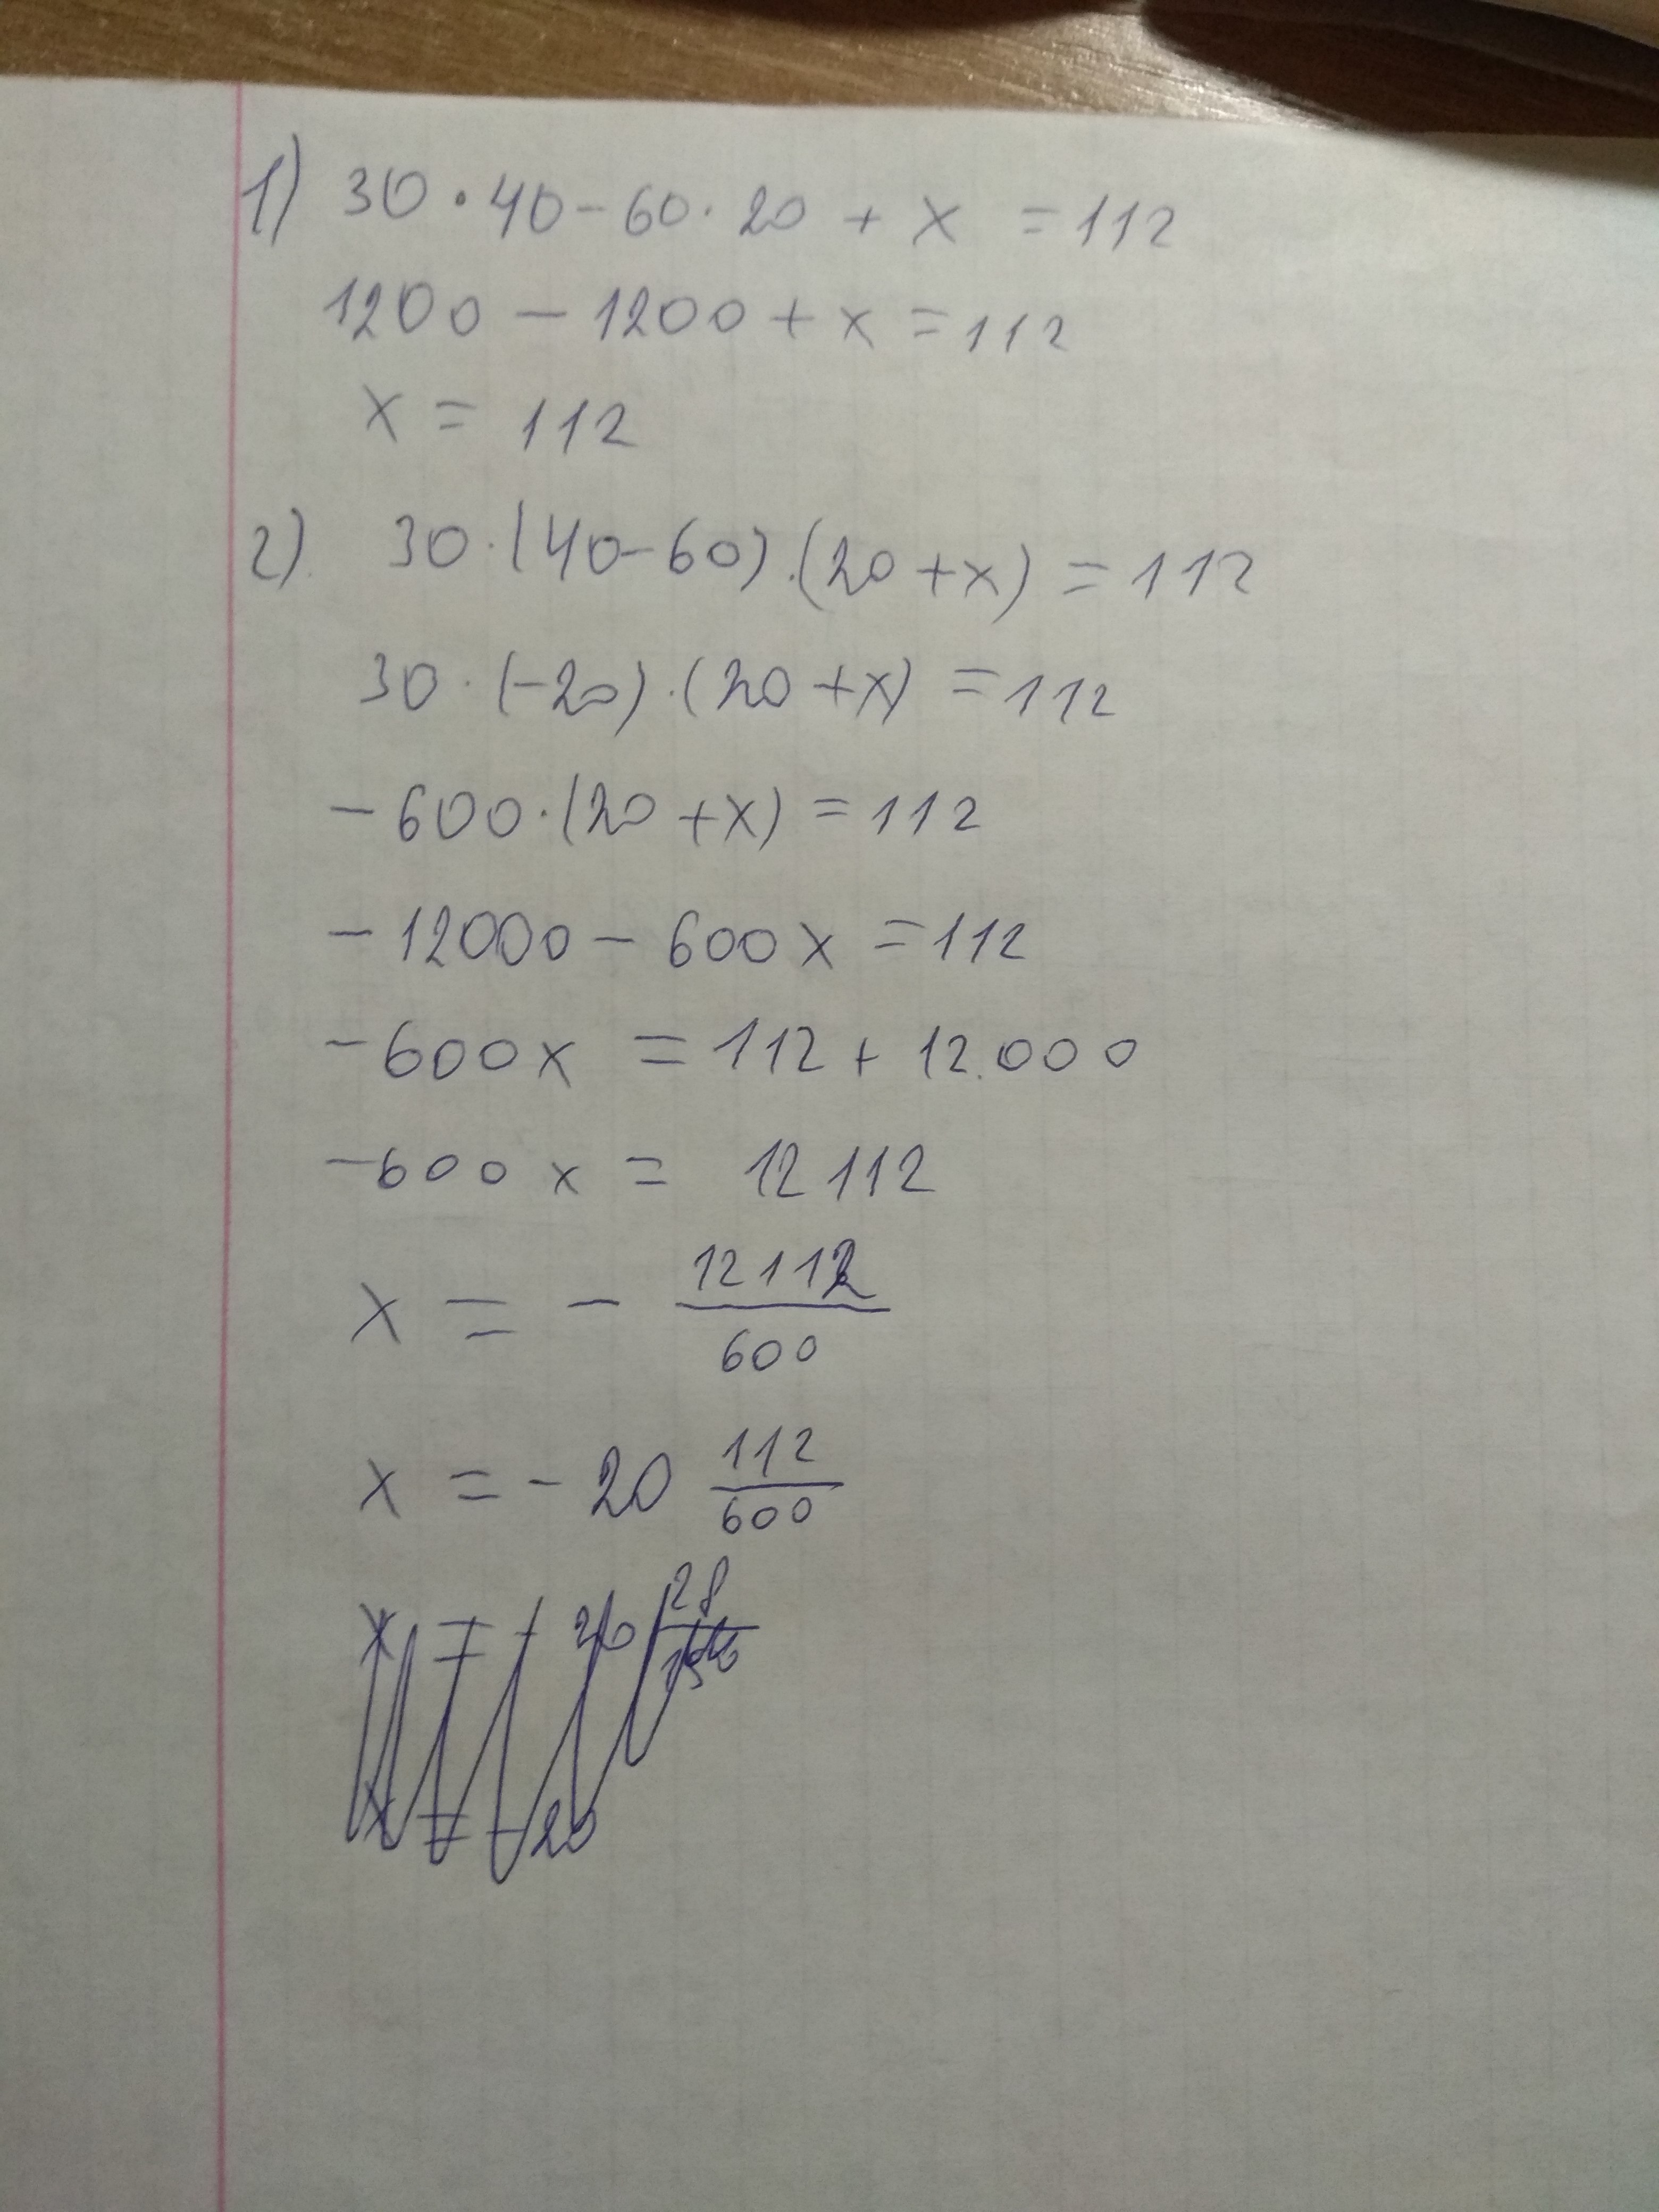 1) 30 · 40 - 60 · 20 + x = 112
1200 - 1200 + x = 112
x = 112
2). 30 · (40 - 60) · (20 + x) = 112
30 · (-20) · (20 + x) = 112
- 600 · (20 + x) = 112
- 12000 - 600 x = 112
- 600 x = 112 + 12.000
- 600 x = 12 112
x = - 12112/600
x = - 20 112/600
x = - 20